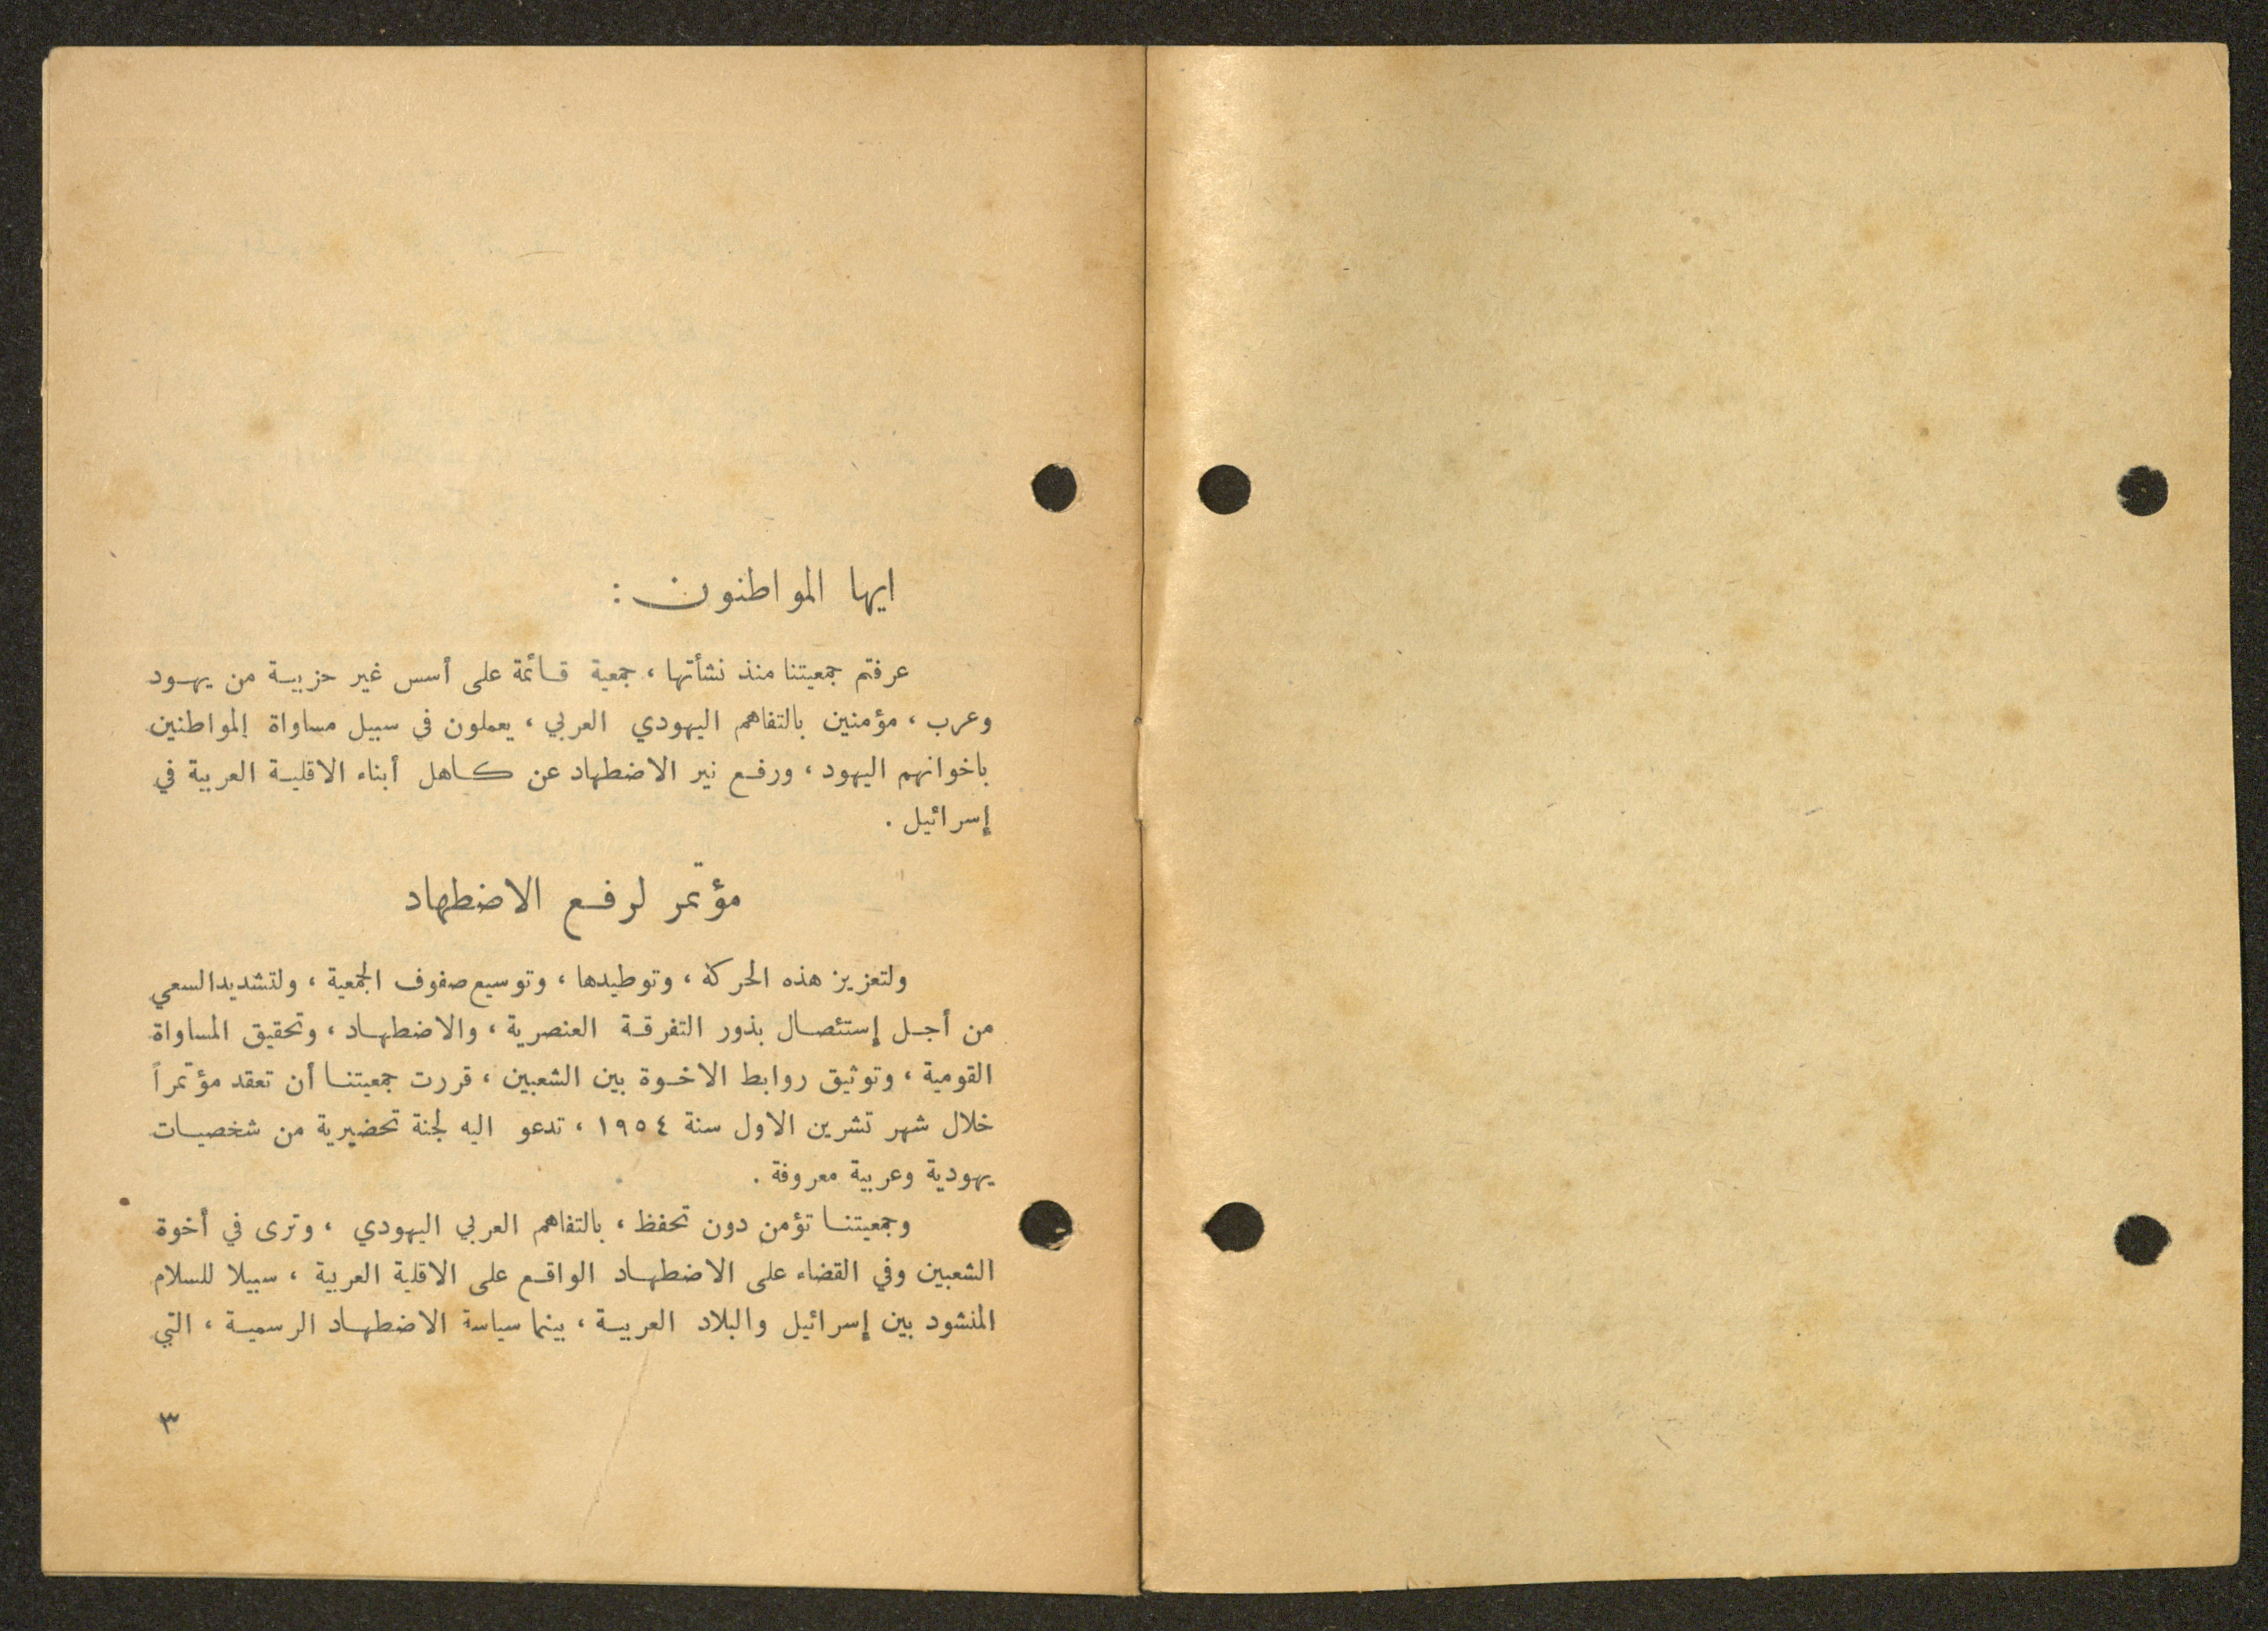 ايها المواطنون :
عرفتم جمعيتنا منذ نشأتها ، جمعية قائمة على أسس غير حزبية من يهود
وعرب ، مؤمنين بالتفاهم اليهودي العربي ، يعملون في سبيل مساواة المواطنين
باخوانهم اليهود ، ورفع نير الاضطهاد عن كاهل أبناء الاقلية العربية في
إسرائيل .
مؤتمر لرفع الاضطهاد
ولتعزيز هذه الحركة ، وتوطيدها ، وتوسيع صفوف الجمعية ، ولتشديد السعي
من أجل إستئصال بذور التفرقة العنصرية ، والاضطهاد ، وتحقيق المساواة
القومية ، وتوثيق روابط الاخوة بين الشعبين ، قررت جمعيتنا أن تعقد مؤتمراً
خلال شهر تشرين الاول سنة ١٩٥٤ ، تدعو اليه لجنة تحضيرية من شخصيات
يهودية وعربية معروفة .
وجمعيتنا تؤمن دون تحفظ ، بالتفاهم العربي اليهودي ، وترى في أخوة
الشعبين وفي القضاء على الاضطهاد الواقع على الاقلية العربية ، سبيلا للسلام
المنشود بين إسرائيل والبلاد العربية ، بينما سياسة الاضطهاد الرسمية ، التي
٣